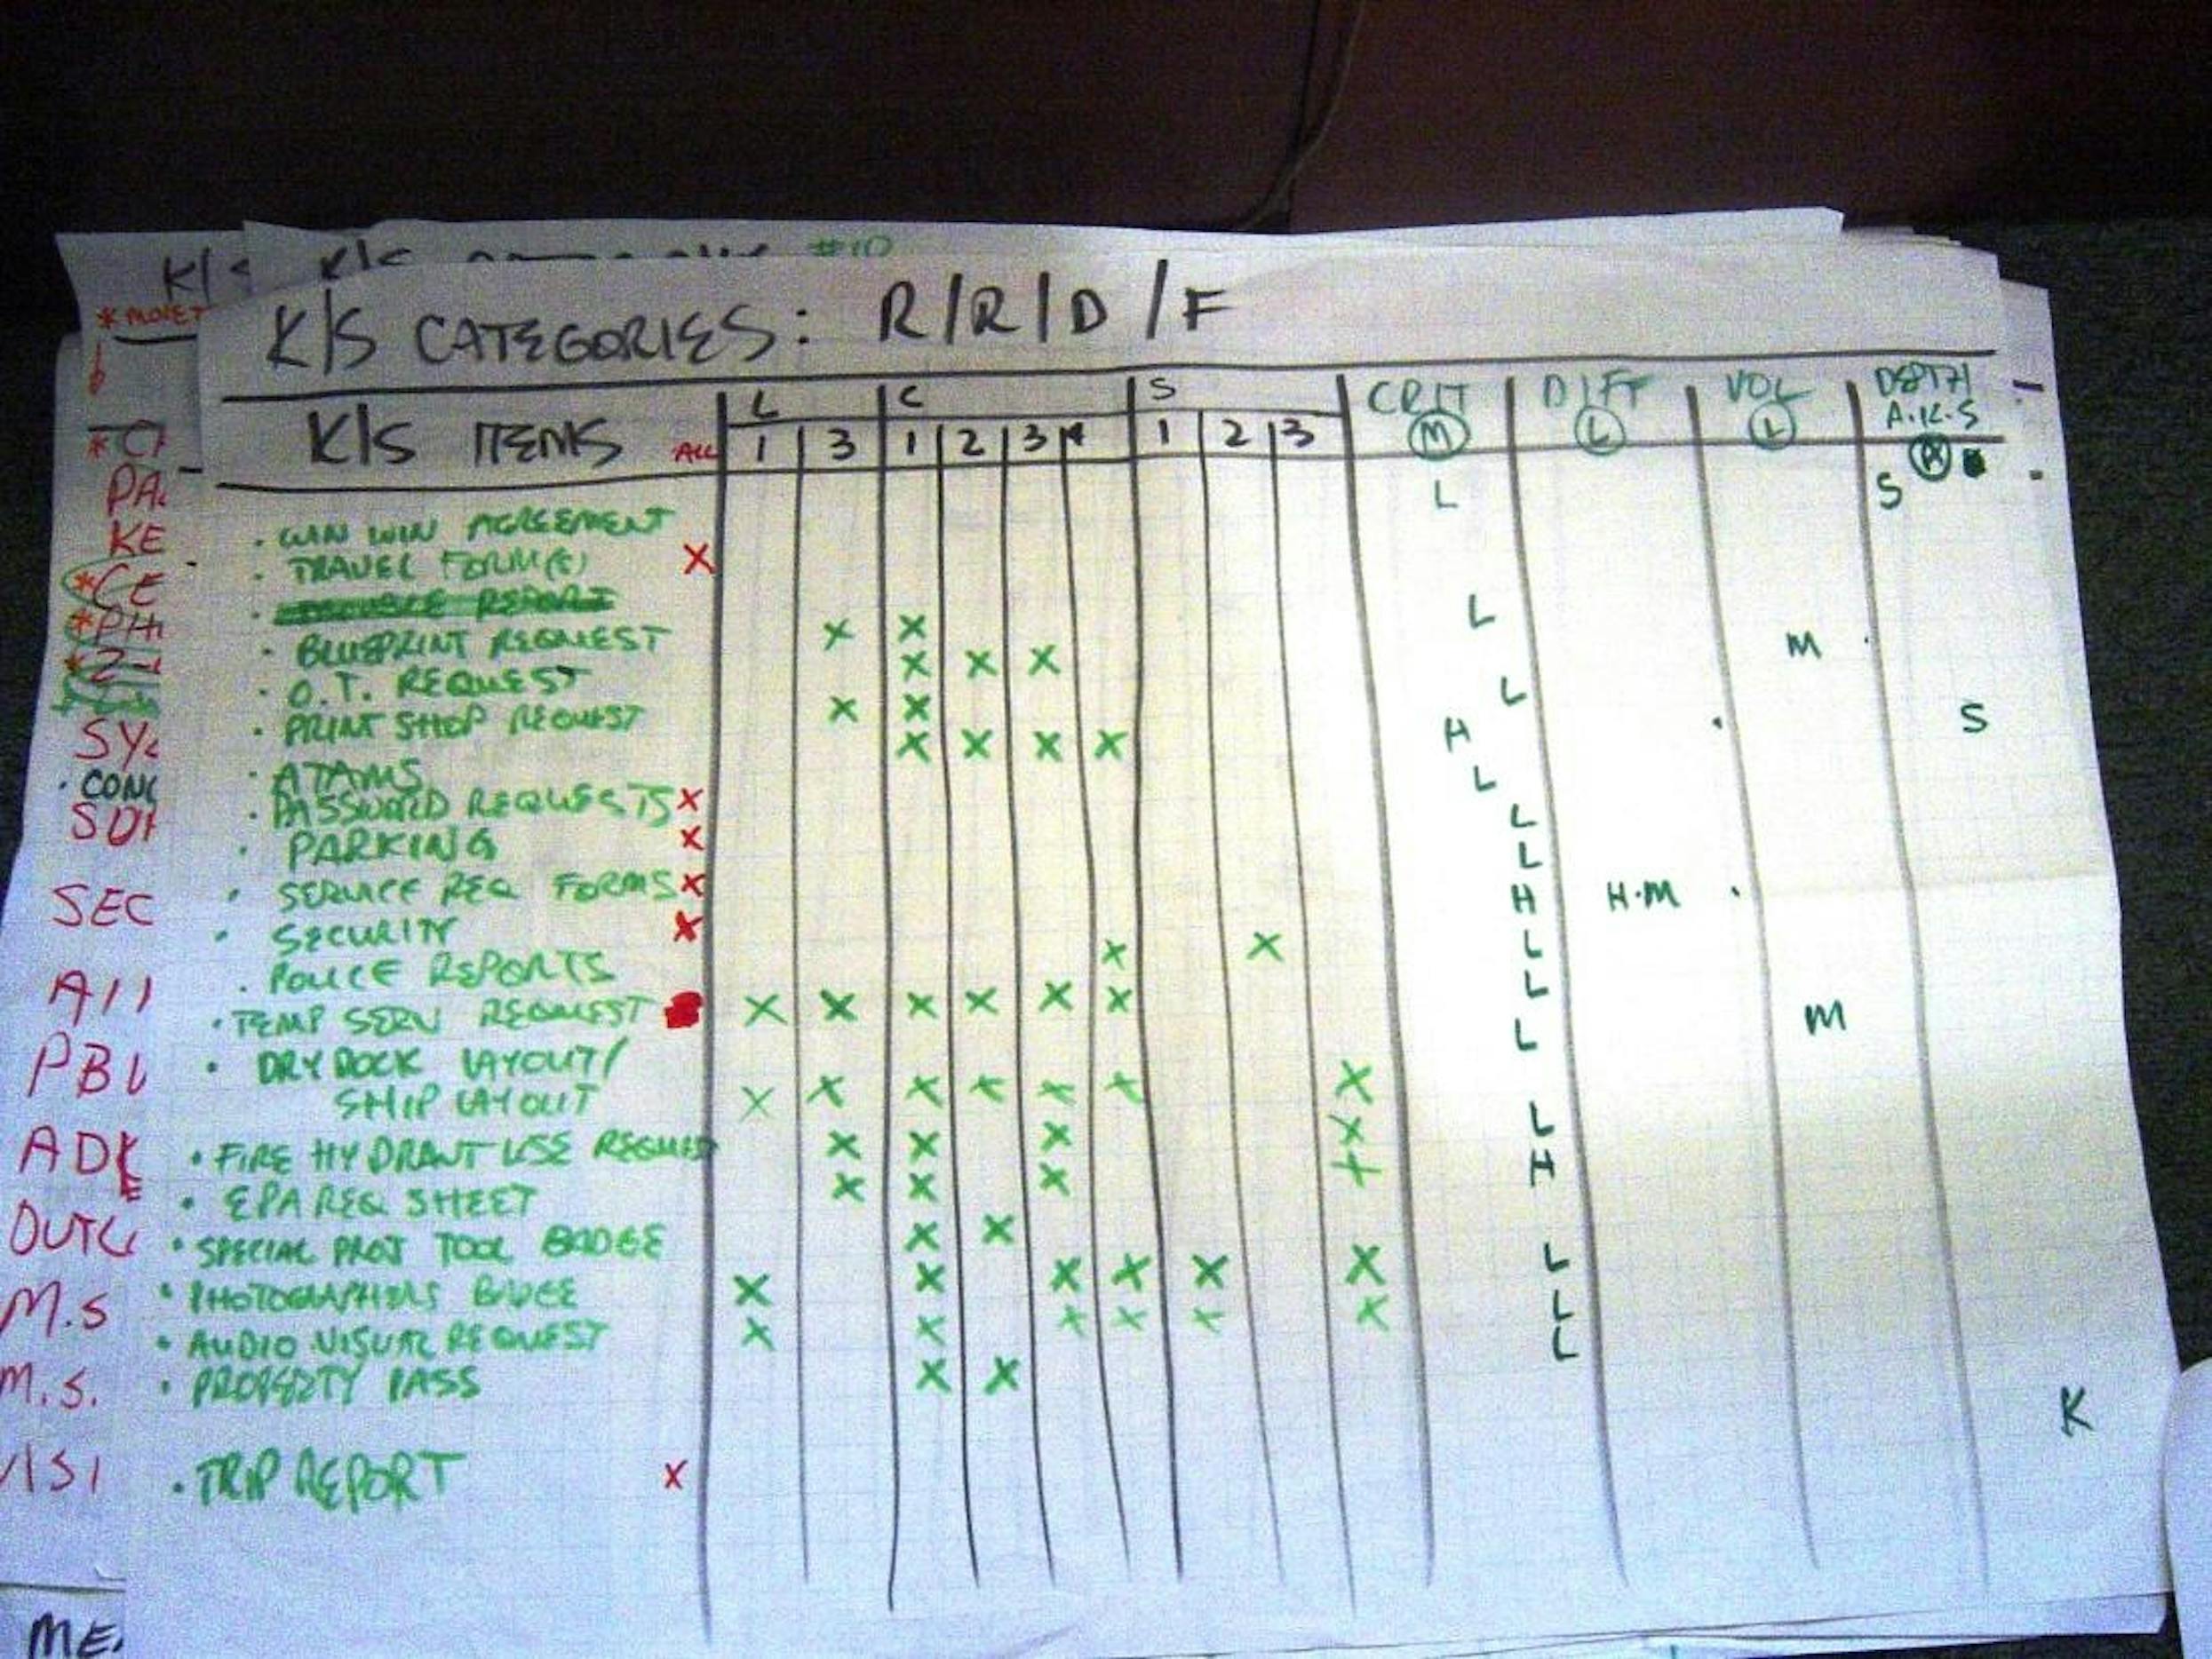 #10
K/S
* MOVET
K/S CATEGORIES: R/R/D/F
L C S CRIT DIFF VOL DEPTH
A.K.S
K/S ITEMS ALL 1 3 1 2 3 4 1 2 3 M L L
L S
PA
KE
*CE
*PH
SY
· CONC
SEC
PBL
M.S
M.S.
VISI
· WIN WIN AGREEMENT
· TRAVEL FORM(S) X
· BLUEPRINT REQUEST X X L
· O.T. REQUEST X X X M
· PRINT SHOP REQUEST X X L
· ATAMS X X X X H S
· PASSWORD REQUESTS X L
· PARKING X L
· SERVICE REQ FORMS X L
· SECURITY X H H·M
· POLICE REPORTS X X L
· TEMP SERV REQUEST X X X X X X L
M
· DRY DOCK LAYOUT/ L
SHIP LAYOUT X X X X X X X
· FIRE HYDRANT USE REQUEST X X X X L
· EPA REQ SHEET X X X X H
· SPECIAL PROJ TOOL BADGE X X
· PHOTOGRAPHERS BADGE X X X X X X L
· AUDIO VISUAL REQUEST X X X X X X L
· PROPERTY PASS X X L
K
· TRIP REPORT X